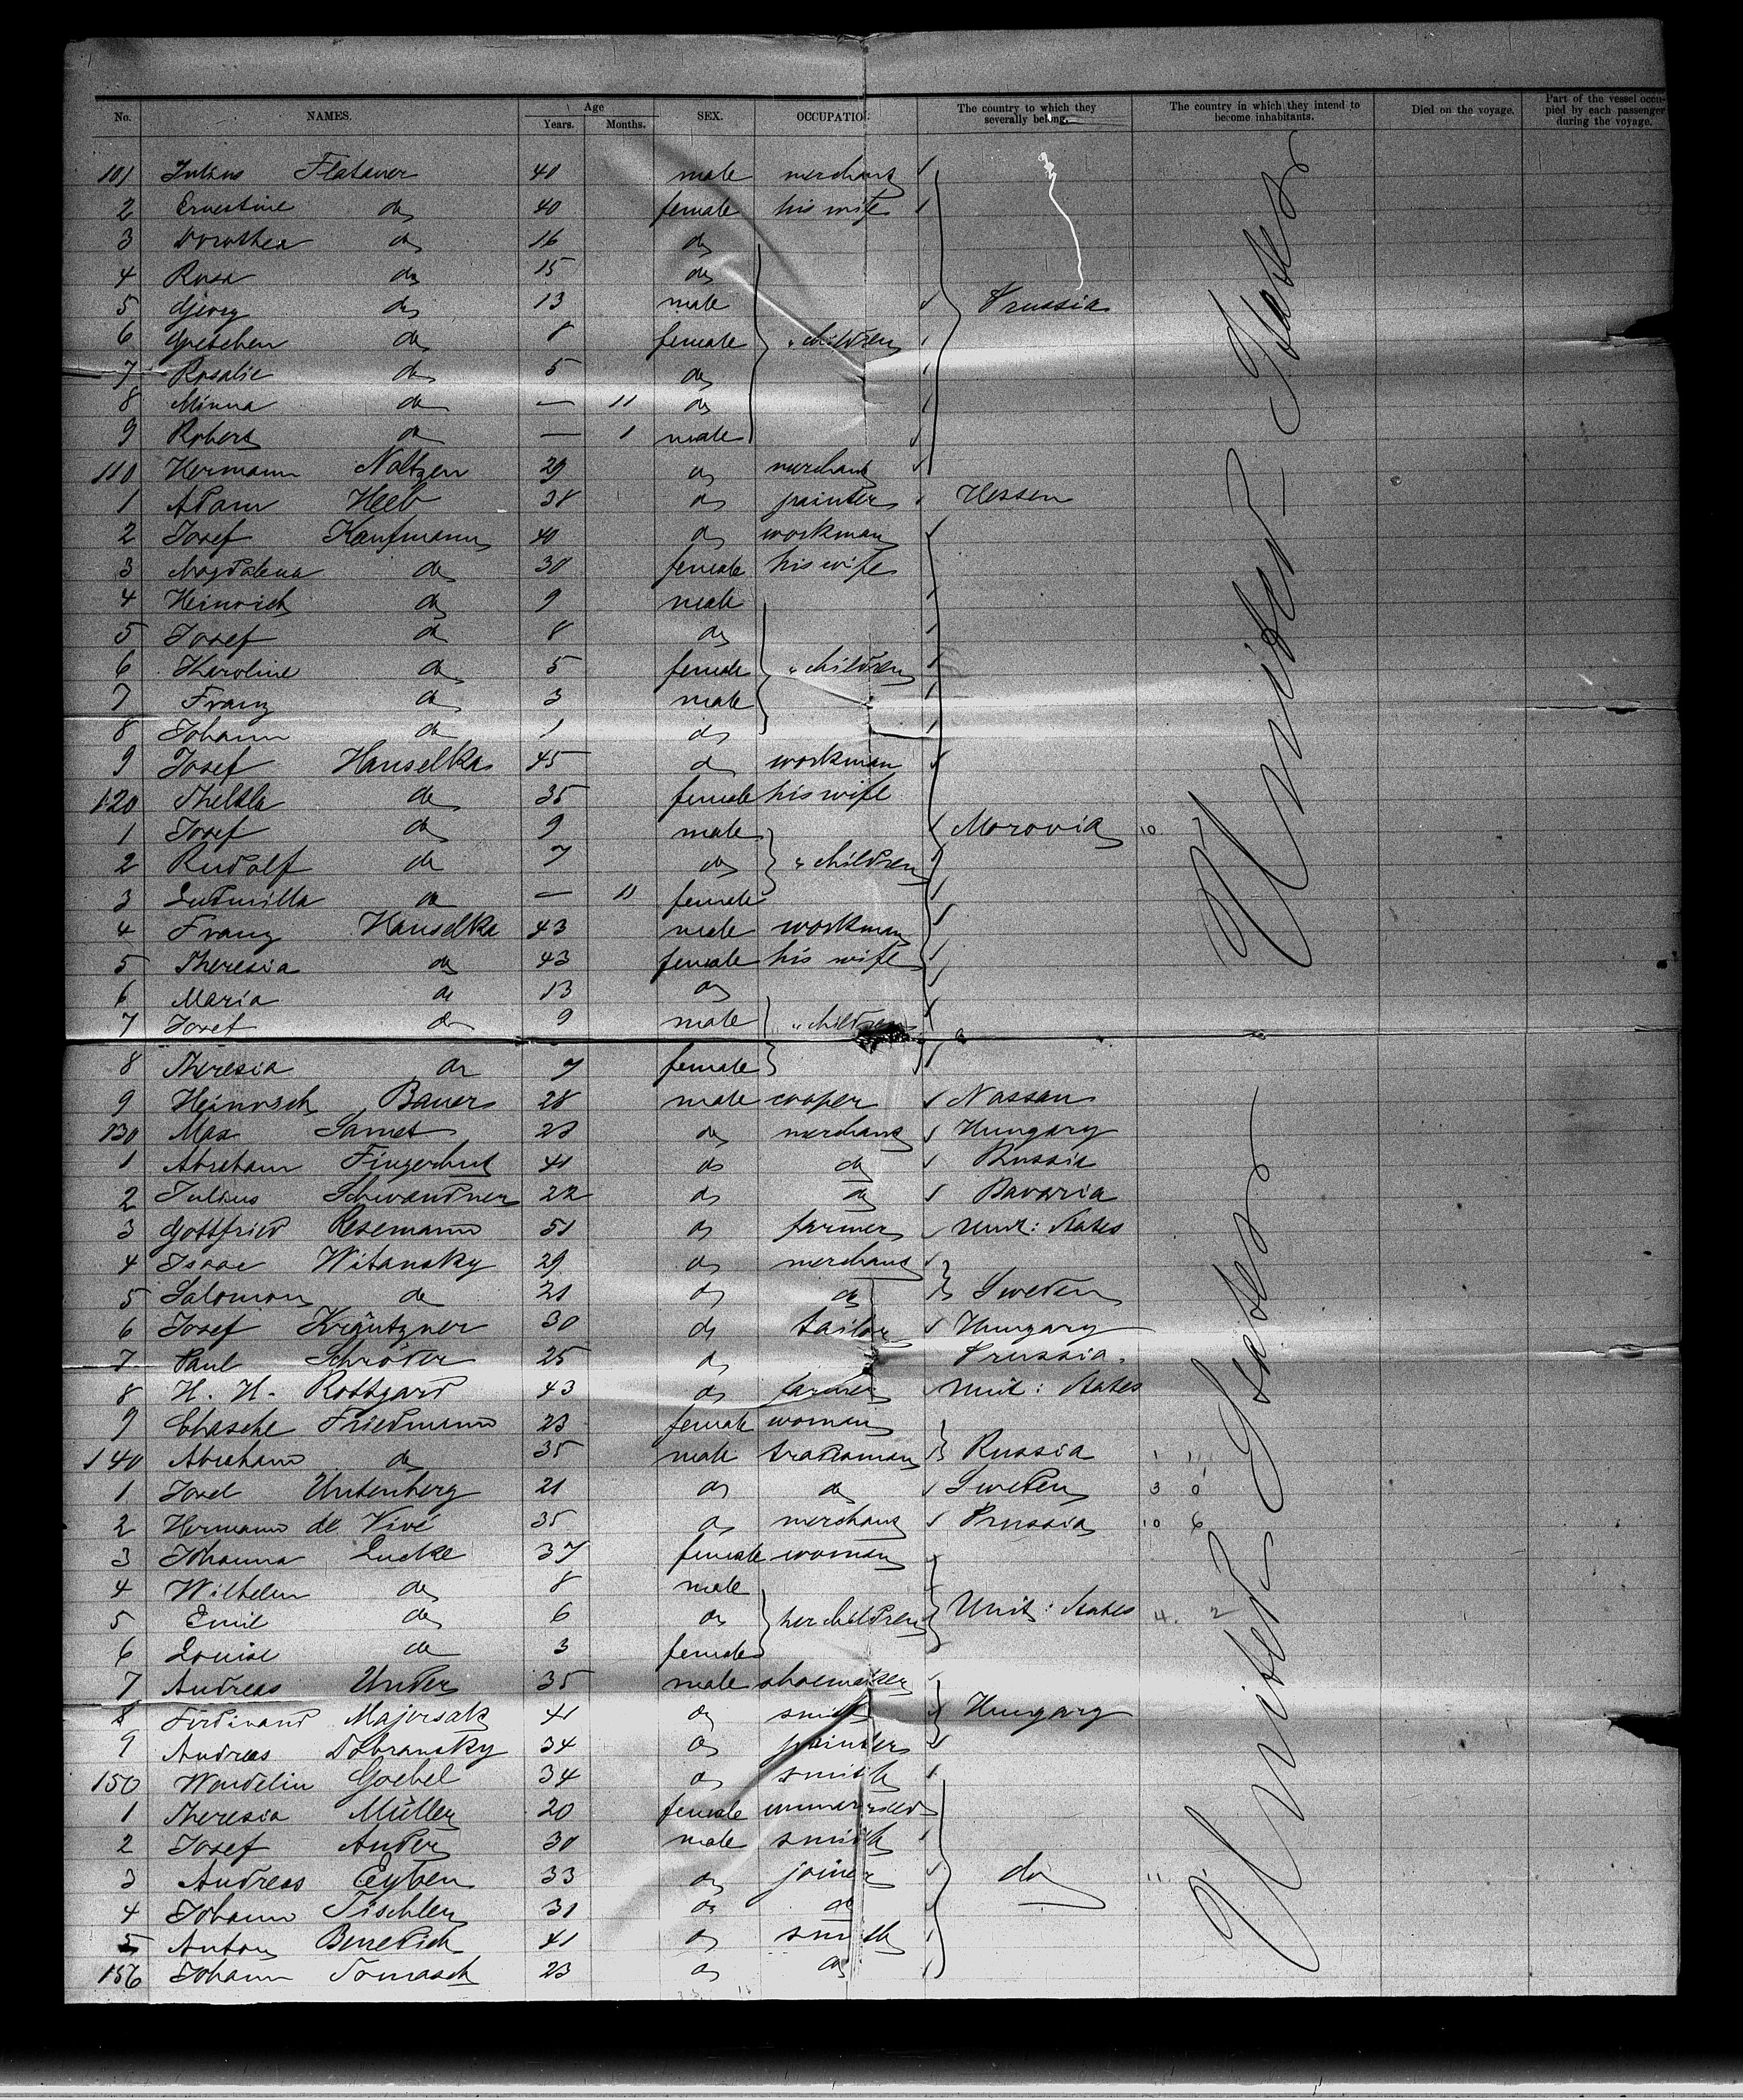 No. NAMES. Age Years. Months. SEX. OCCUPATION. The country to which they severally belong. The country in which they intend to become inhabitants. Died on the voyage. Part of the vessel occupied by each passenger during the voyage.
101 Julius Flatauer 40 male merchant
2 Ernestine do 40 female his wife
3 Dorothea do 16 do
4 Rosa do 15 do
5 Georg do 13 male Prussia
6 Gretchen do 8 female " children
7 Rosalie do 5 do
8 Minna do — 11 do
9 Robert do — 1 male
110 Hermann Noltzen 29 do merchant
1 Adam Heeb 38 do painter Hessen
2 Josef Kaufmann 40 do workman
3 Magdalena do 30 female his wife
4 Heinrich do 9 male
5 Josef do 8 do
6 Karoline do 5 female " children
7 Franz do 3 male
8 Johann do 1 do
9 Josef Hanselka 45 do workman
120 Thekla do 35 female his wife
1 Josef do 9 male Moravia 10
2 Rudolf do 7 do " children
3 Ludmilla do — 11 female
4 Franz Hanselka 43 male workman
5 Theresia do 43 female his wife
6 Maria do 13 do
7 Josef do 9 male " children
8 Theresia do 7 female
9 Heinrich Bauer 28 male cooper Nassau
130 Max Samet 23 do merchant Hungary
1 Abraham Fingerhut 41 do do Russia
2 Julius Schwandner 22 do do Bavaria
3 Gottfried Resemann 51 do farmer Unit: States
4 Isaac Witansky 29 do merchant
5 Salomon do 21 do do Sweden
6 Josef Kräutzner 30 do tailor Hungary
7 Paul Schröder 25 do Prussia.
8 H. H. Rottgard 43 do farmer Unit: States
9 Chasche Friedmann 23 female woman
140 Abraham do 35 male tradesman Russia 1 11
1 Josel Untenberg 21 do do Sweden 3 0
2 Hermann de Vivé 35 do merchant Prussia 10 6
3 Johanna Lucke 37 female woman
4 Wilhelm do 8 male
5 Emil do 6 do her children Unit: States 4. 2
6 Louise do 3 female
7 Andreas Under 35 male shoemaker
8 Ferdinand Majersak 41 do smith Hungary
9 Andreas Dobransky 34 do painter
150 Wendelin Goebel 34 do smith
1 Theresia Müller 20 female unmarried
2 Josef Ander 30 male smith
3 Andreas Eyben 33 do joiner do 11
4 Johann Tischler 31 do do
5 Anton Benedick 41 do smith
156 Johann Tomasch 23 do do
United States
United States